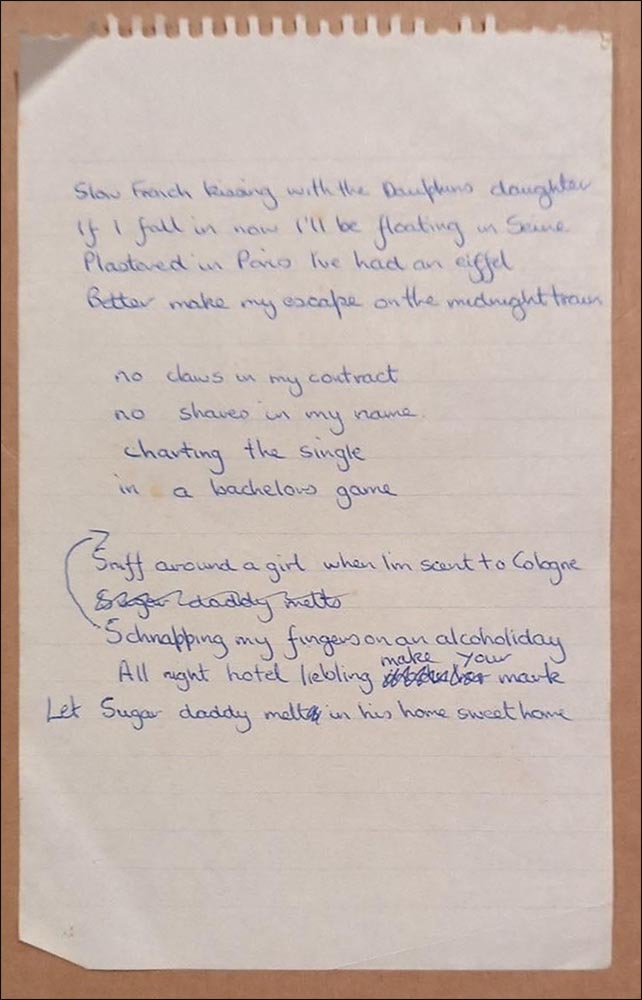 Slow French kissing with the Dauphins daughter
If I fall in now I'll be floating in Seine
Plastered in Paris I've had an eiffel
Better make my escape on the midnight train
no claws in my contract
no shares in my name.
charting the single
in a bachelors game
Sniff around a girl when I'm scent to Cologne
Sugar daddy melts
Schnapping my fingers on an alcoholiday
make your
All right hotel liebling mark
Let Sugar daddy melt in his home sweet home